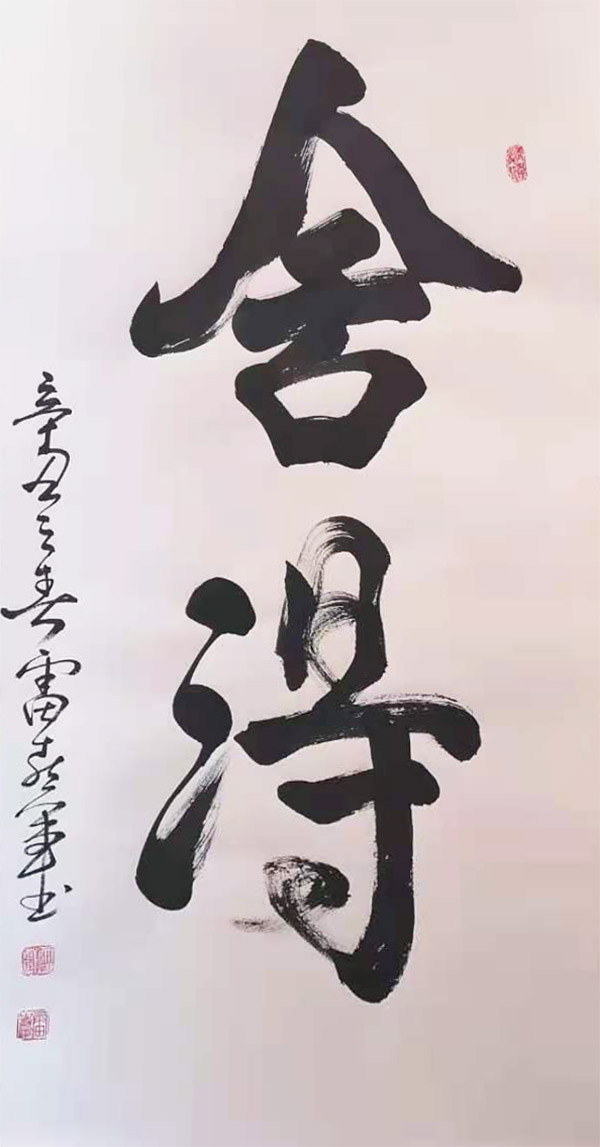 舍得
辛丑之春雷军书